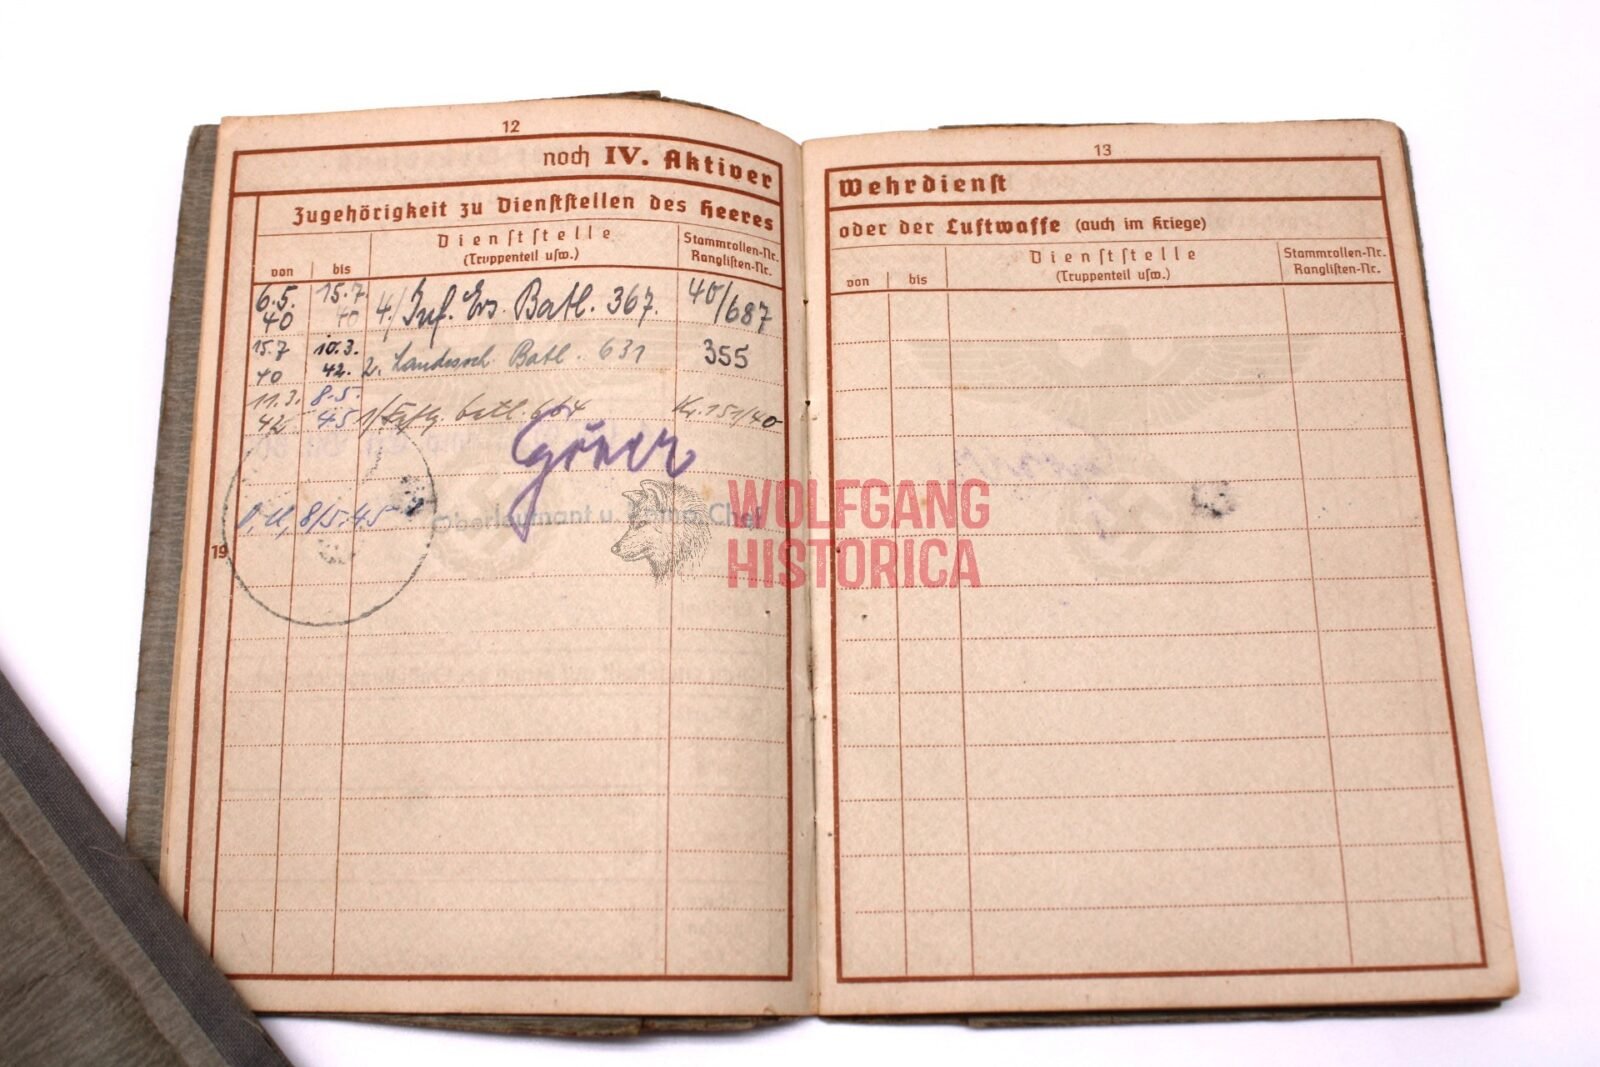 12
noch IV. Aktiver
Zugehörigkeit zu Dienststellen des Heeres
von bis Dienststelle (Truppenteil usw.) Stammrollen-Nr. Ranglisten-Nr.
6.5. 40 15.7. 40 4./Inf. Ers. Batl. 367. 40/687
15.7 40 10.3. 42. 2. Landessch. Batl. 631 355
11.3. 42 8.5. 45 1/ batl. 664 Kr. 151/40
8/5.45
Oberleutnant u. Komp. Chef
19
13
Wehrdienst
oder der Luftwaffe (auch im Kriege)
von bis Dienststelle (Truppenteil usw.) Stammrollen-Nr. Ranglisten-Nr.
WOLFGANG
HISTORICA